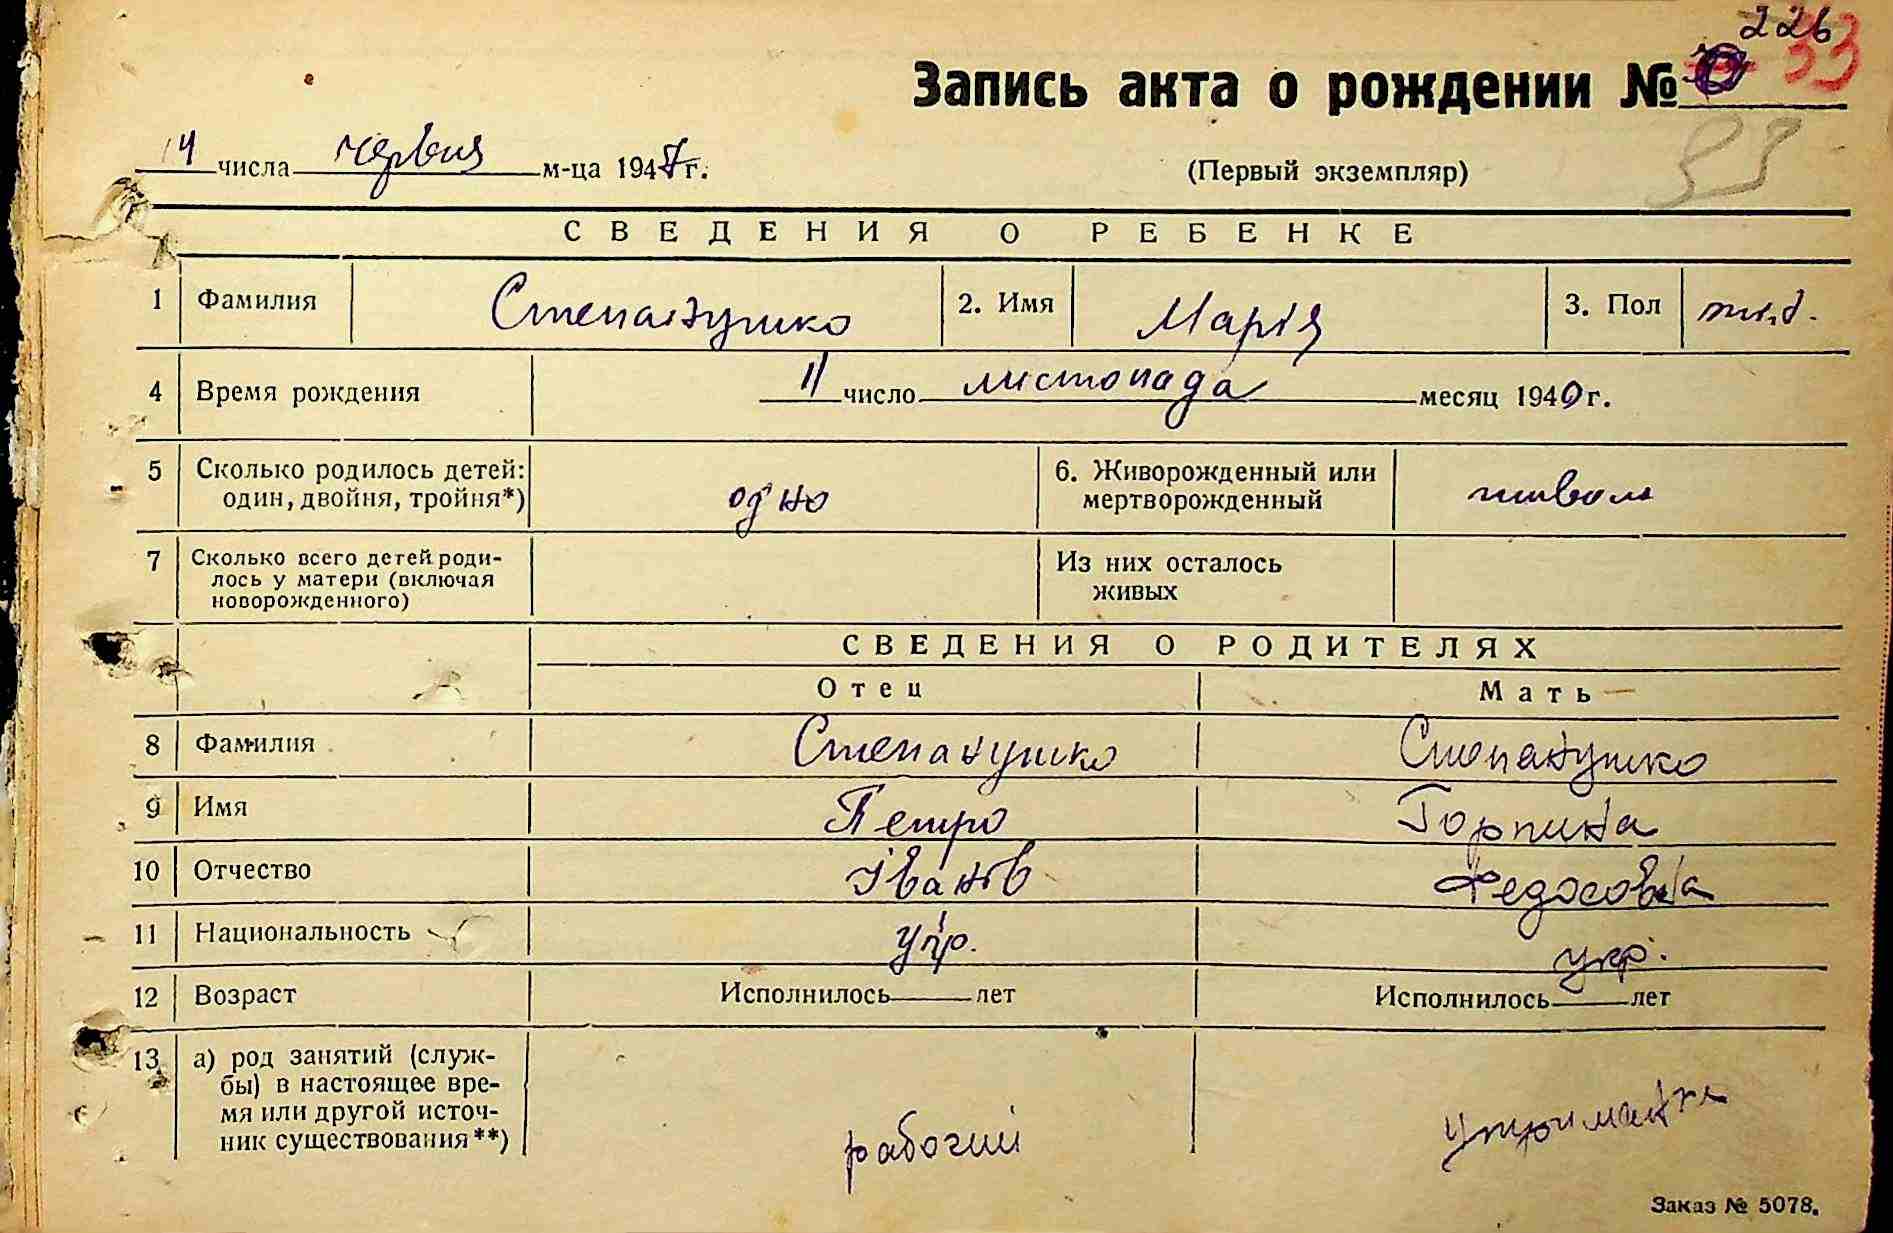 226
33
Запись акта о рождении №
14 числа червня м-ца 1947г.
(Первый экземпляр)
33
СВЕДЕНИЯ О РЕБЕНКЕ
1 Фамилия Степанушко 2. Имя Марія 3. Пол
4 Время рождения 11 число листопада месяц 1940 г.
5 Сколько родилось детей: один, двойня, тройня*) одно 6. Живорожденный или мертворожденный
7 Сколько всего детей родилось у матери (включая новорожденного) Из них осталось живых
СВЕДЕНИЯ О РОДИТЕЛЯХ
Отец Мать
8 Фамилия Степанушко Степанушко
9 Имя Петро Горпина
10 Отчество Іванов Федосовна
11 Национальность укр. укр.
12 Возраст Исполнилось лет Исполнилось лет
13 а) род занятий (служ-
бы) в настоящее вре-
мя или другой источ-
ник существования**) рабочий утриманка
Заказ № 5078.